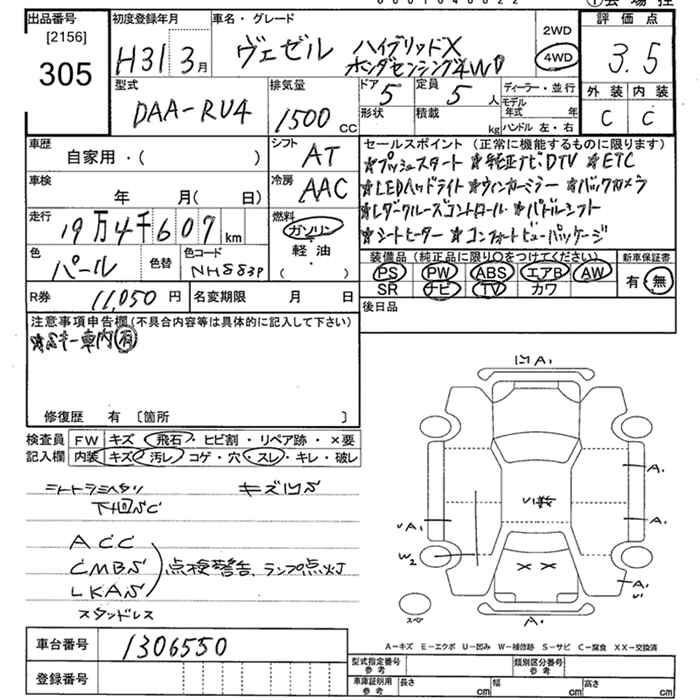 ①会場控
出品番号 初度登録年月 車名・グレード 2WD 評価点
[2156]
305 H31 3月 ヴェゼル ハイブリッドX 4WD 3.5
ホンダセンシング4WD
型式 排気量 ドア 定員 ディーラー・並行 外装 内装
DAA-RU4 1500cc 5 5人 モデル年式 年 C C
形状 積載 kg ハンドル 左・右
車歴 シフト セールスポイント (正常に機能するものに限ります)
自家用・( ) AT ☆プッシュスタート ☆純正ナビ、DTV ☆ETC
車検 冷房 ☆LEDヘッドライト ☆ウィンカーミラー ☆バックカメラ
年 月(日) AAC ☆レダクルーズコントロール ☆パドルシフト
走行 燃料 ☆シートヒーター ☆コンフォートビューパッケージ
19万4千607km ガソリン
軽油
( )
色 色替 色コード 装備品(純正品に限り○をつけてください) 新車保証書
パール NH883P PS PW ABS エアB AW 有・無
SR ナビ TV カワ
R券 11,050円 名変期限 月 日 後日品
注意事項申告欄(不具合内容等は具体的に記入して下さい)
車内有
修復歴 有 [箇所 ]
検査員 FW キズ・飛石・ヒビ割・リペア跡・×要
記入欄 内装 キズ・汚レ・コゲ・穴・スレ・キレ・破レ
下回SC
ACC
CMBS 点検警告、ランプ点灯
LKAS
スタッドレス
A1
A1
A1
A1
W2
A1
スペ
A-キズ E-エクボ U-凹み W-補修跡 S-サビ C-腐食 XX-交換済
車台番号 1306550
登録番号
型式指定番号 参考 類別区分番号 参考
車庫証明用 参考 長さ cm 幅 cm 高さ cm